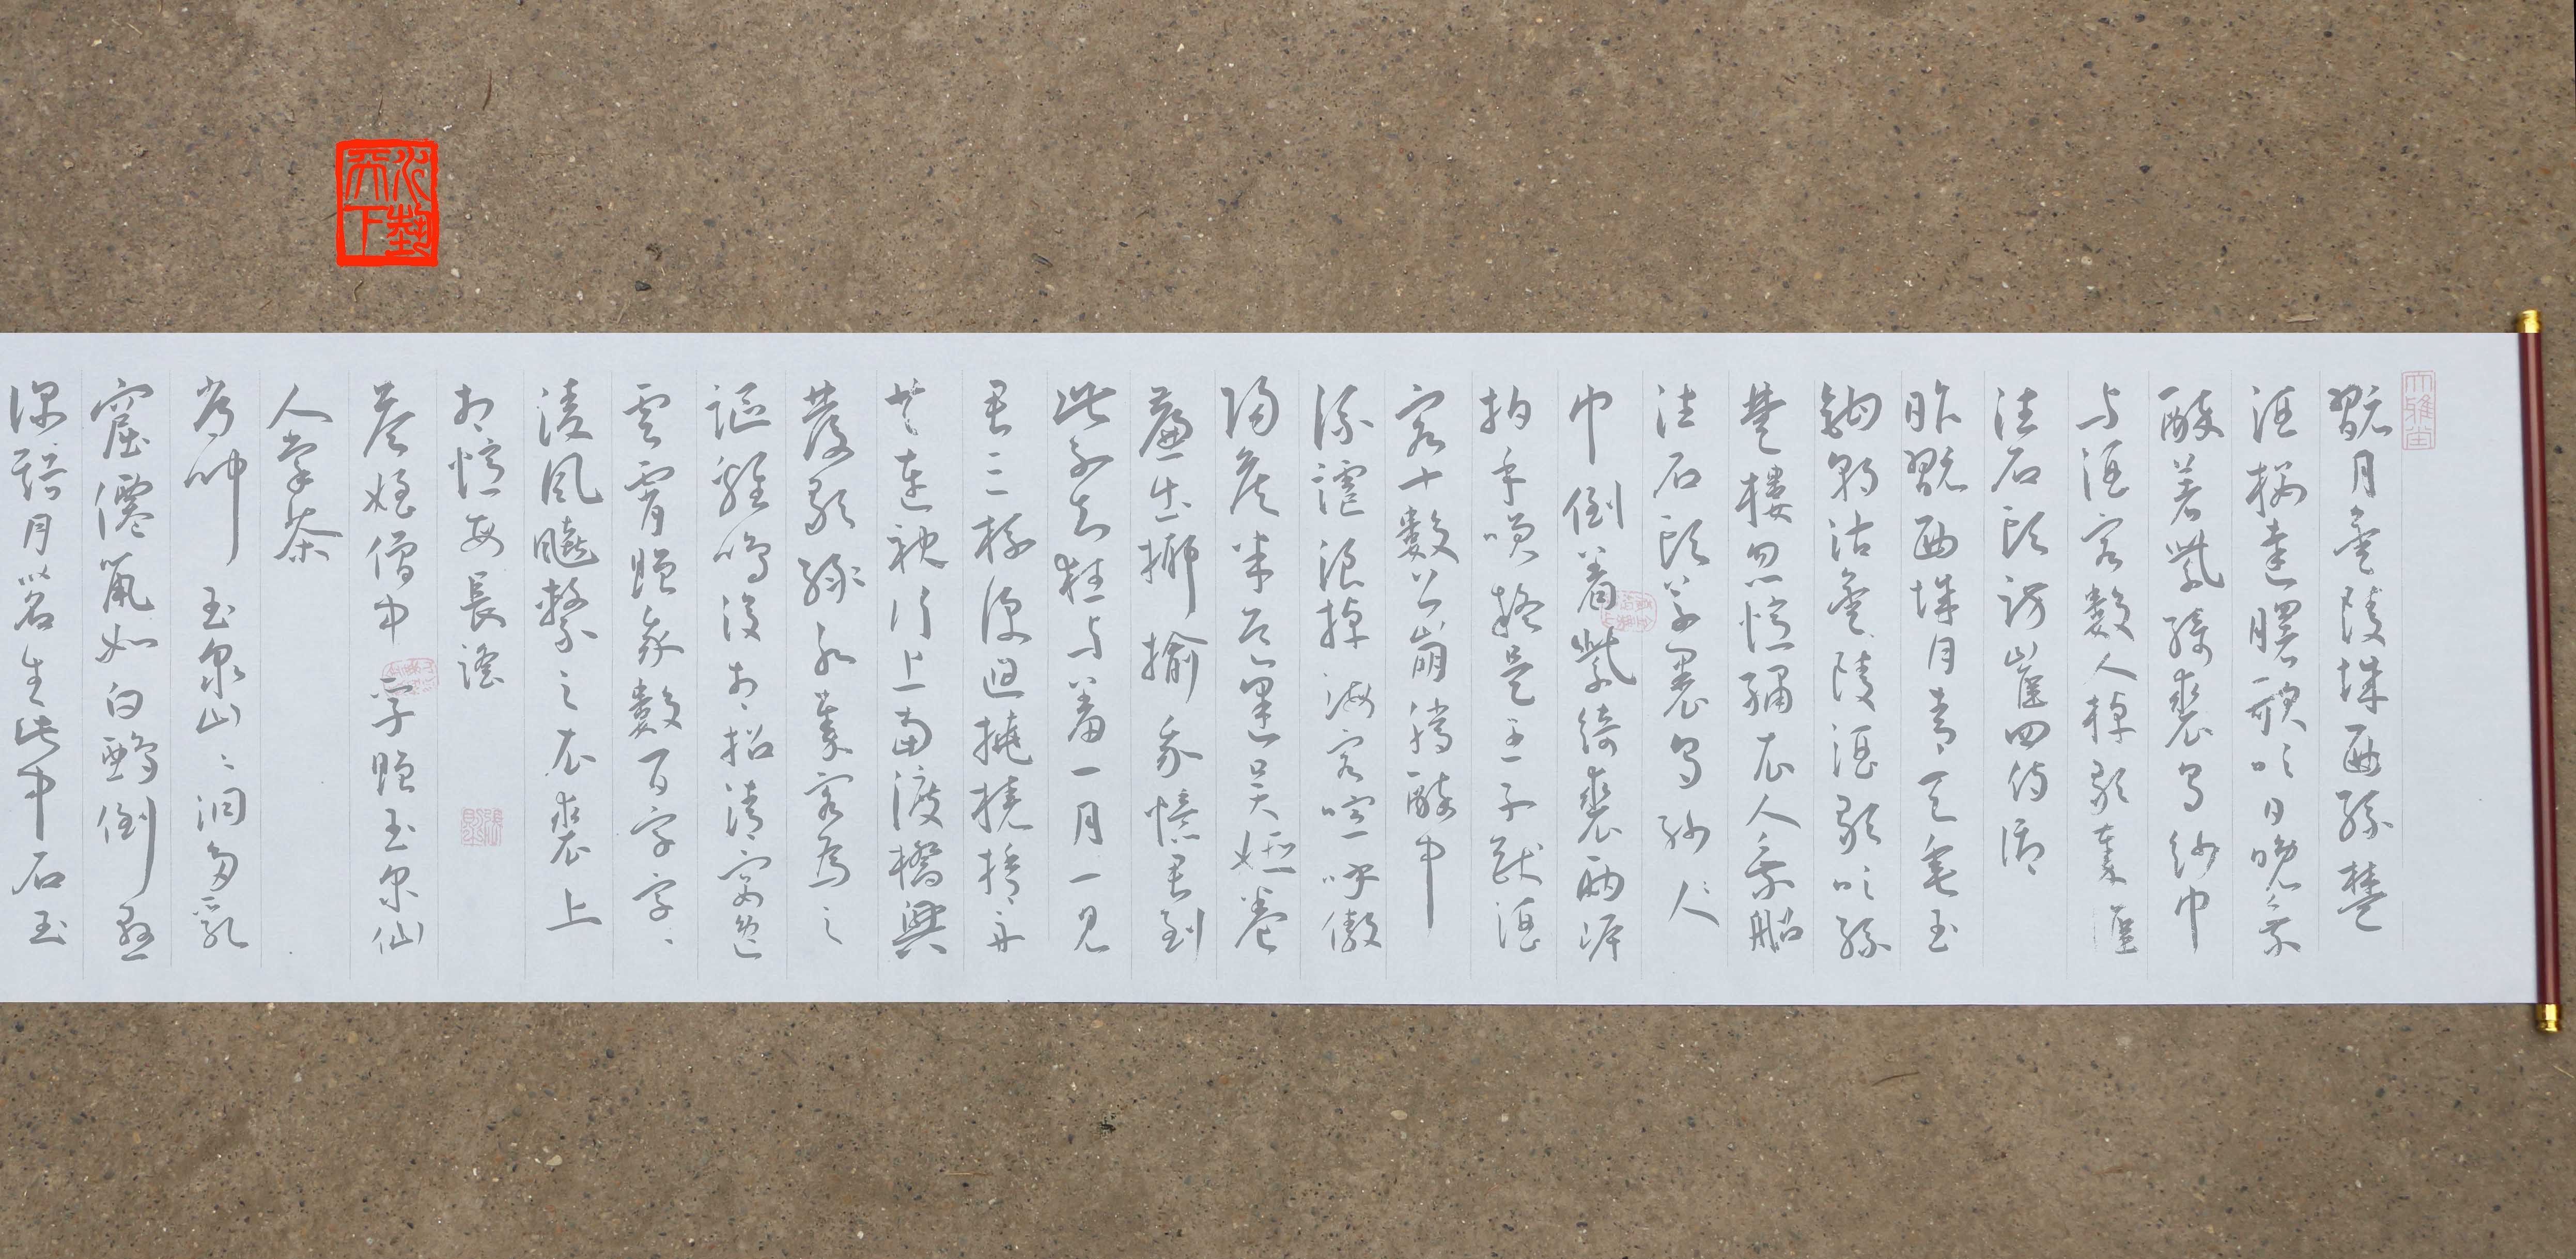 大雅堂
翫月金陵城西孫楚
酒樓達曙歌吹日晚乘
醉著紫綺裘烏紗巾
与酒客數人棹歌秦淮
往石頭訪崔四侍御
昨翫西城月青天垂玉
鉤朝沽金陵酒歌吹孫
楚樓忽憶繡衣人乘船
往石頭草裹烏紗人
巾倒着紫綺裘兩岸
拍手笑疑是王子猷酒
客十數公崩騰醉中
流謔浪棹海客喧呼傲
陽侯半道逢吳姬卷
簾出揶揄我憶君到
此不知狂与羞一月一見
君三杯便迴橈橈捨舟
共連袂行上南渡橋興
發歌綠水秦客為之
謳雞鳴復相招清宴逸
雲霄贈我數百字字〻
凌風飈繫之衣裘上
相憶每長謠
答姪僧中孚贈玉泉仙
人掌茶
常聞玉泉山〻洞多乳
窟僊鼠如白鴉倒懸
深谿月茗生此中石玉